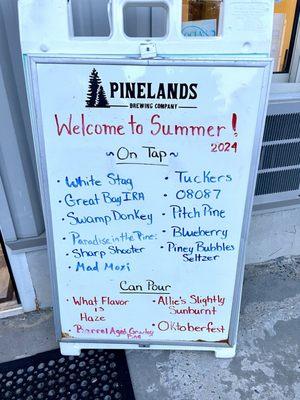 PINELANDS
BREWING COMPANY
Welcome to Summer!
2024
~ On Tap ~
• White Stag
• Great Bay IRA
• Swamp Donkey
• Paradise in the Pine
• Sharp Shooter
• Mad Moxi
• Tuckers
• 08087
• Pitch Pine
• Blueberry
• Piney Bubbles
Seltzer
Can Pour
• What Flavor
is
Haze
• Barrel Aged Gravley
Pine
• Allie's Slightly
Sunburnt
• Oktoberfest